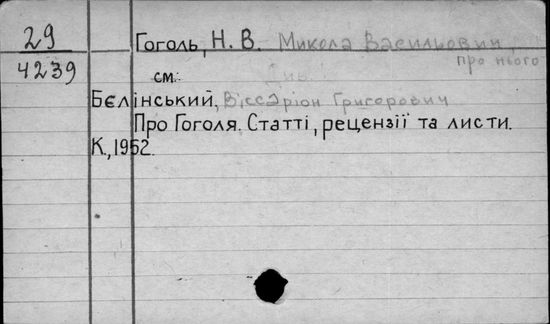 29
4239
Гоголь, Н. В. Микола Васильович,
про нього
см. Див.
Бєлінський, Віссаріон Григорович
Про Гоголя. Статті, рецензії та листи.
К., 1952.